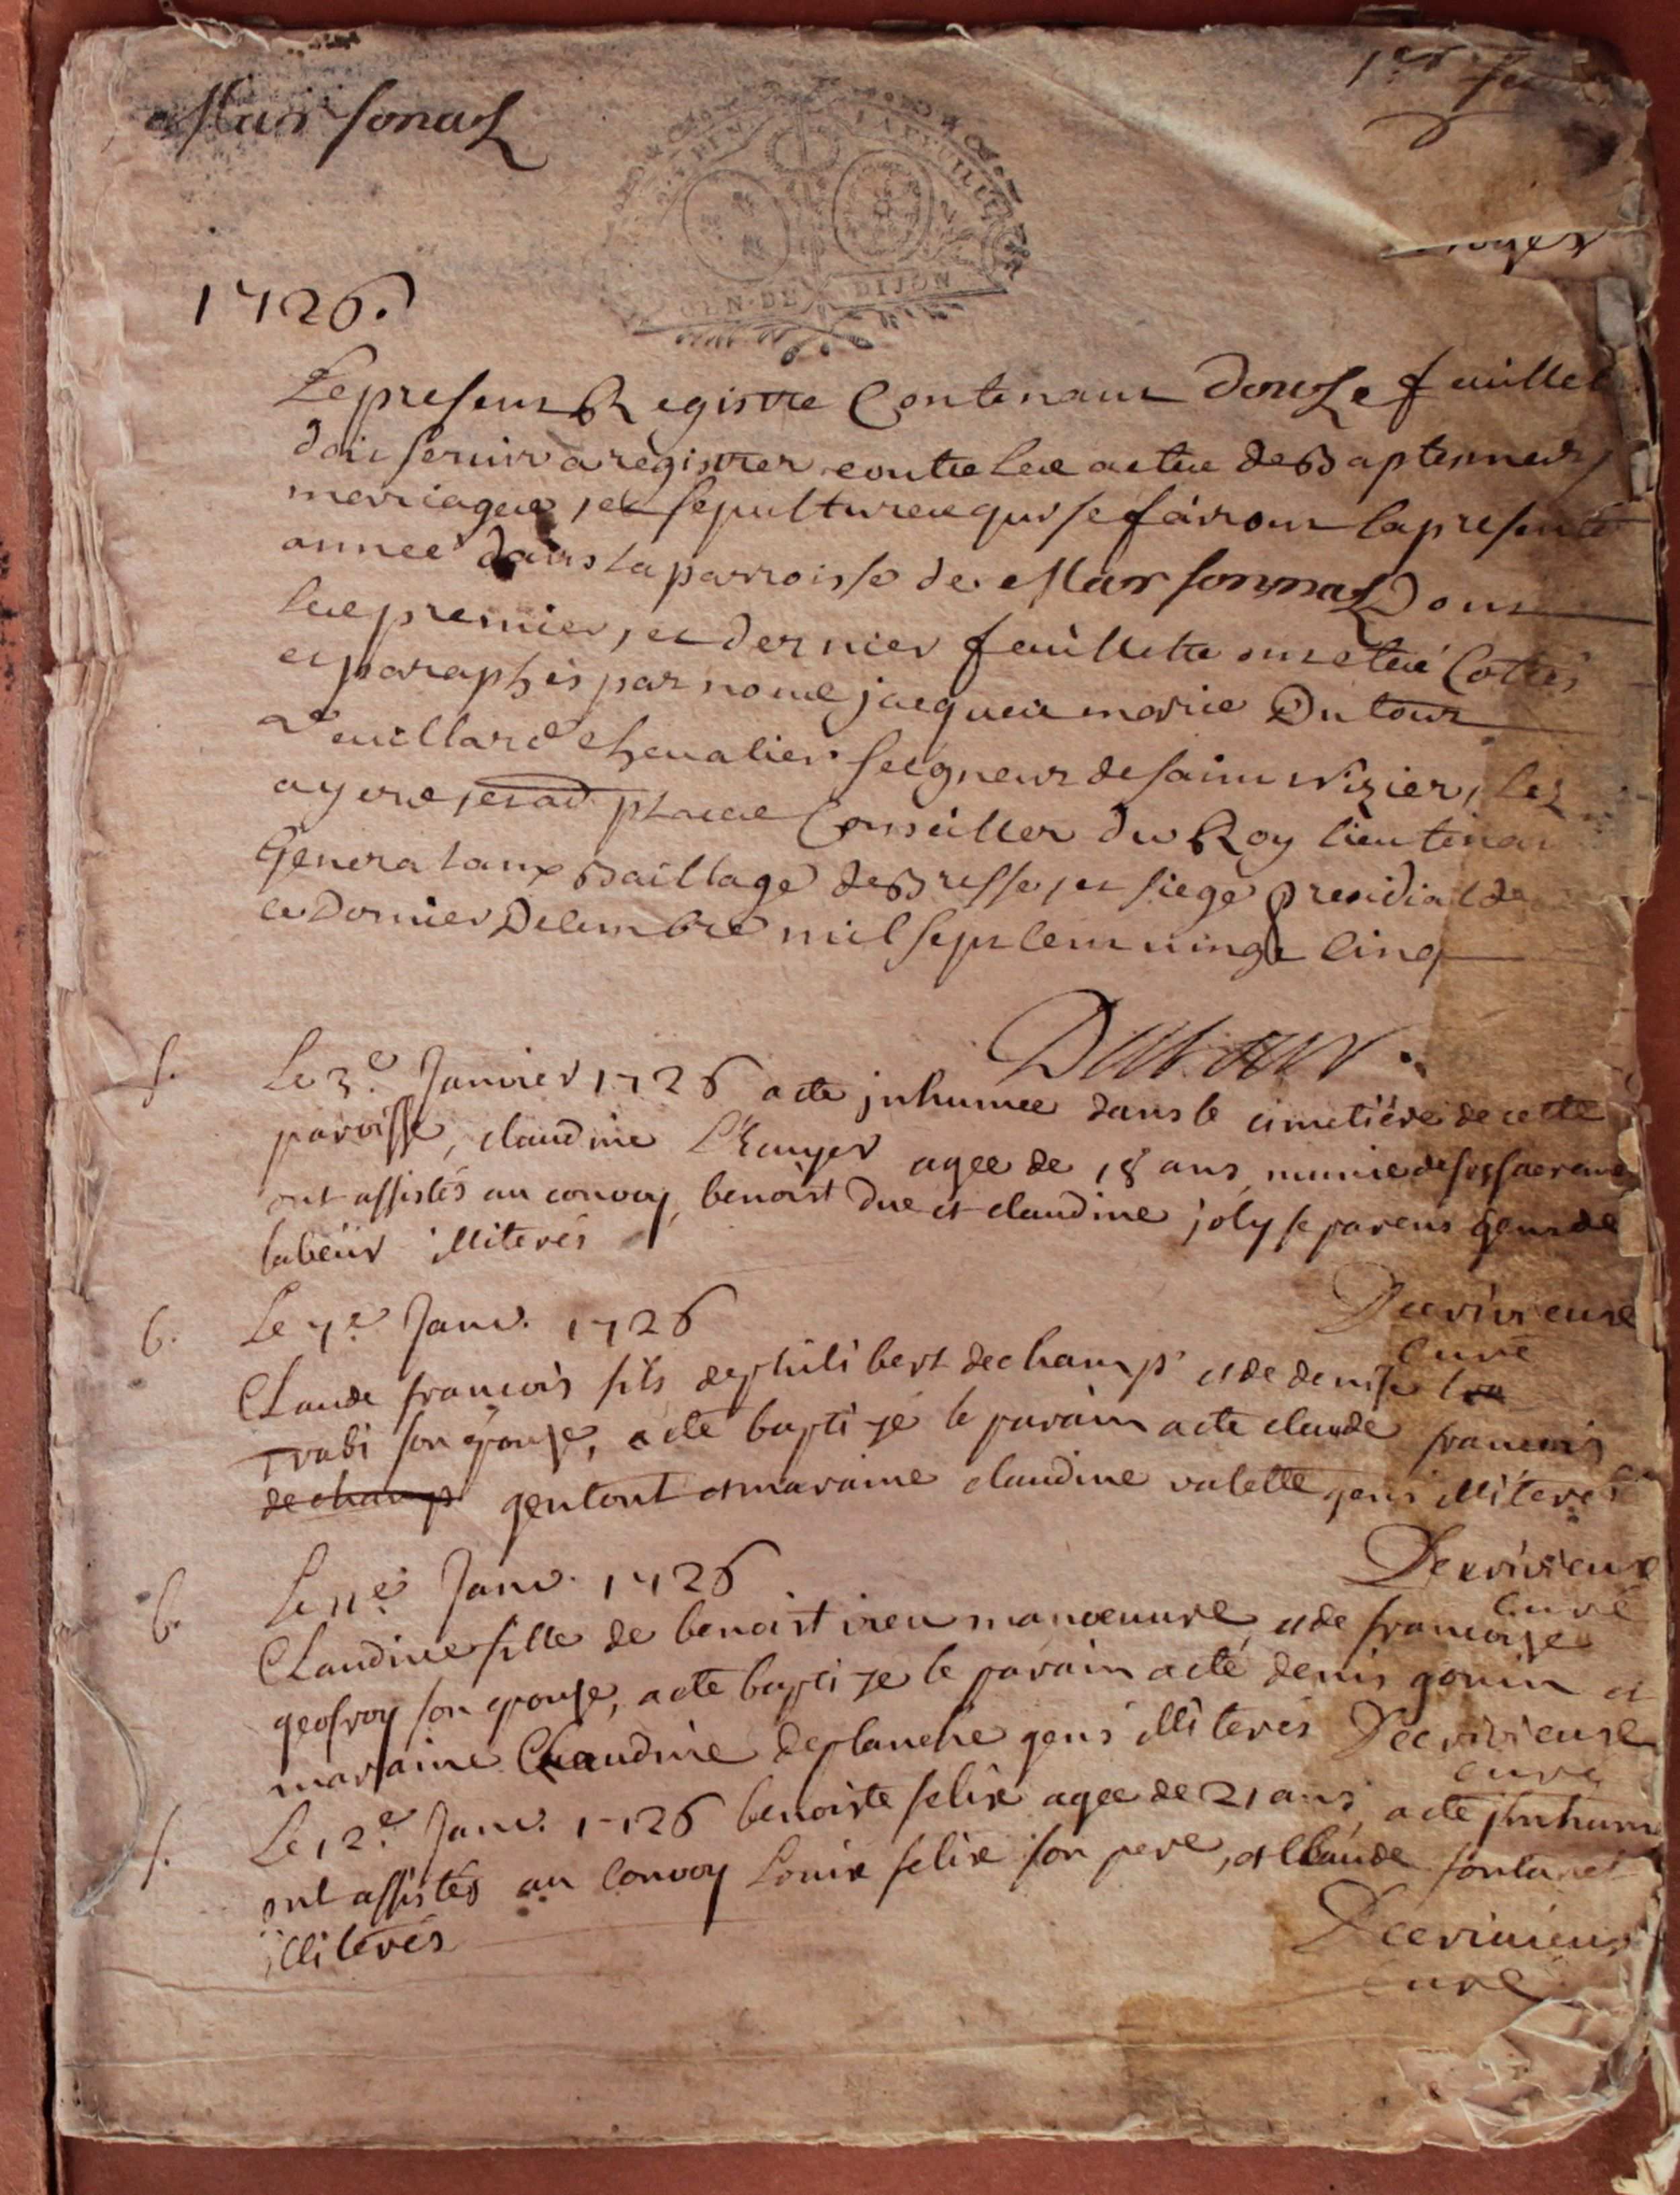 Marsonas
1er feu
GEN·DE DIJON
1726.
Le present Registre Contenant Douze feuillet
doit servir a registrer toutte les actes de Baptesmes,
mariages, et sepultures qui se fairont la presente
année dans la parroisse de Marsonnas Dont
les premier, et dernier feuillette ont eté Cottés
et paraphés par nous jacques marie Du tour
Vuillard chevalier Seigneur de saint Nizier, les
aynes, et ad. places Conseiller du Roy lieutenan
General aux Baillage de Bresse, et siege presidial de
ce Dernier Decembre mil sept cent vingt Cinq
Dutour.
s. Le 3.e Janvier 1726 a ete jnhumee dans le cimetiére de cette
paroisse, claudine agee de 18 ans munie de ses sacremens
ont assistés au convoy, benoist duc et claudine joly se parens gens de
labeür illiterés
Decrivieuse
curé
b. Le 7.e Janv. 1726
Claude francois fils de philibert dechamp et de denise tra
trabi son epouse, a eté baptisé le parain a eté claude francois
dechamp gentout et maraine claudine valette gens illiterés
Decrivieuse
curé
b. Le 11.e Janv. 1726
Claudine fille de benoist vieu manoeuvre, et de francoise
geofroy son epouse, a eté baptisé le parain a eté denis gonin et
marraine Claudine deplanche gens illiterés Decrivieuse
curé
s. Le 12.e Janv. 1726 benoiste felix agee de 21 ans a eté jnhum
ont assistés au Convoy Louis felix son pere, et Claude fontanel
illiterés
Decrivieuse
curé